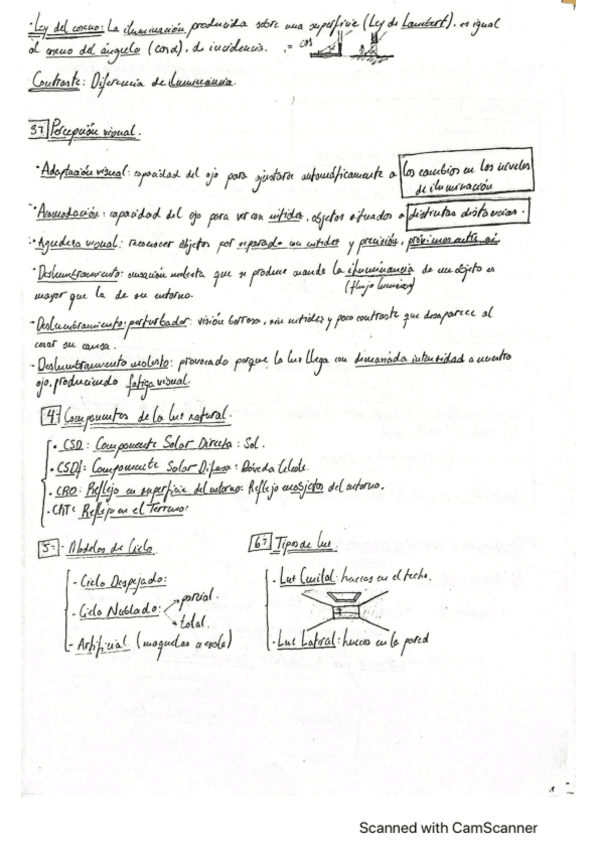 · Ley del coseno: La iluminación producida sobre una superficie (Ley de Lambert). es igual
al coseno del ángulo (cosα). de incidencia. = cos
Contraste: Diferencia de iluminancia.
3º Percepción visual.
· Adaptación visual: capacidad del ojo para ajustarse automáticamente a los cambios en los niveles
de iluminación
· Acomodación: capacidad del ojo para ver con nitidez, objetos situados a distintas distancias.
· Agudeza visual: reconocer objetos por separado con nitidez y precisión, próximos entre sí
· Deslumbramiento: sensación molesta que se produce cuando la iluminancia de un objeto es
(flujo luminoso)
mayor que la de su entorno.
· Deslumbramiento perturbador: visión borrosa, sin nitidez y poco contraste que desaparece al
cesar su causa.
· Deslumbramiento molesto: provocado porque la luz llega con demasiada intensidad a nuestro
ojo, produciendo fatiga visual.
4º Componentes de la luz natural.
· CSD: Componente Solar Directa: Sol.
· CSDf: Componente Solar Difusa: Bóveda Celeste.
· CRO: Reflejo en superficie del entorno: Reflejo objetos del entorno.
· CRT: Reflejo en el Terreno:
5º - Modelos de Cielo
6º Tipos de luz.
- Cielo Despejado:
- Cielo Nublado: parcial.
total.
- Artificial (maquetas a escala)
- Luz Cenital: huecos en el techo.
- Luz Lateral: huecos en la pared
Scanned with CamScanner